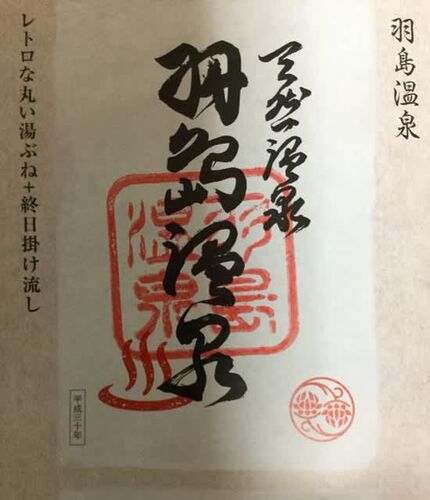 羽島温泉
天然温泉
羽島温泉
羽島温泉
平成三十年
レトロな丸い湯ぶね+終日掛け流し